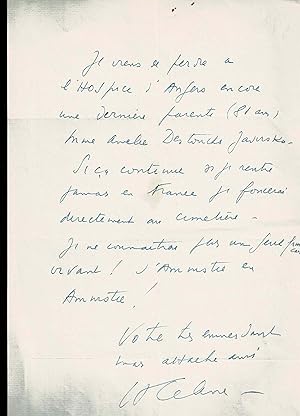 Je viens de perdre à
l'Hospice d'Angers encore
une dernière parente (81 ans)
Mme Amélie Destouche
Si ça continue si je rentre
jamais en France je foncerai
directement au cimetière -
Je ne connaitrai pas un seul
vivant ! d'Amnistie en
Amnistie !
Votre
attaché ami